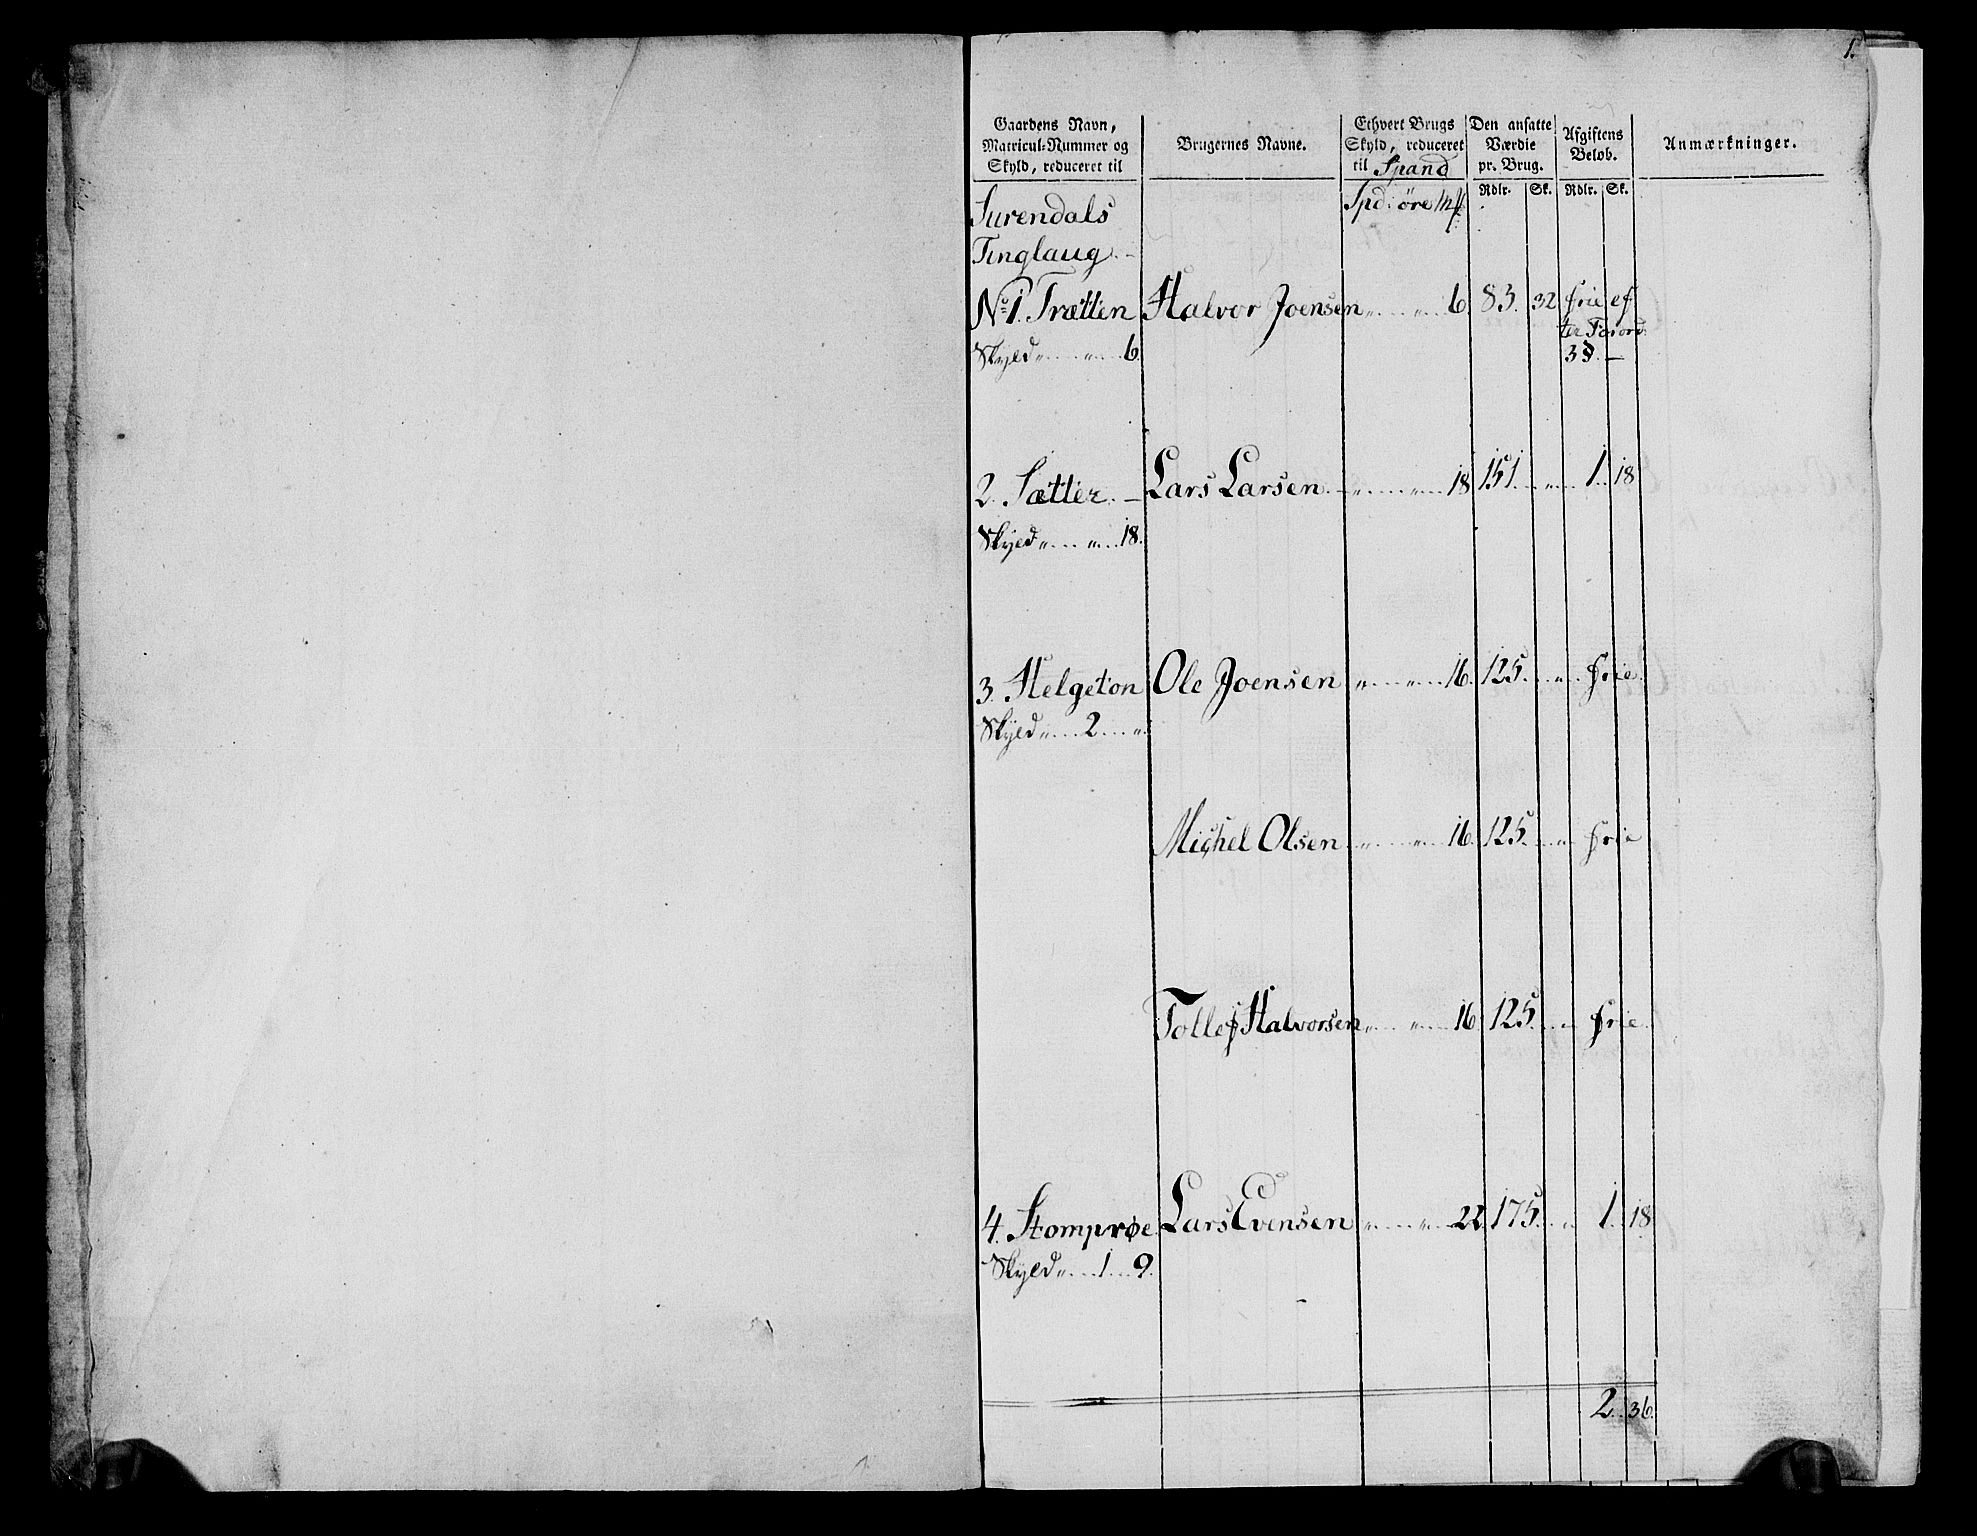 1.
Gaardens Navn, Matricul-Nummer og Skyld, reduceret til
Brugernes Navne.
Ethvert Brugs Skyld, reduceret til Spand
Den ansatte Værdie pr. Brug.
Afgiftens Beløb.
Anmærkninger.
Rdlr. Sk. Rdlr. Sk.
Surendals Spd: øre
Tinglaug.
No. 1. Trætten Halvor Joensen 6. 83. 32 frie ef
ter Forord:
Skyld 6. 3 §. —
2. Sætter. Lars Larsen 18 151 1. 18
Skyld 18.
3. Helgeton Ole Joensen 16. 125. frie
Skyld 2
Michel Olsen 16. 125. frie
Tollef Halvorsen 16 125. frie
4. Stomprøe Lars Evensen 22. 175. 1. 18
Skyld 1 9.
2. 36.